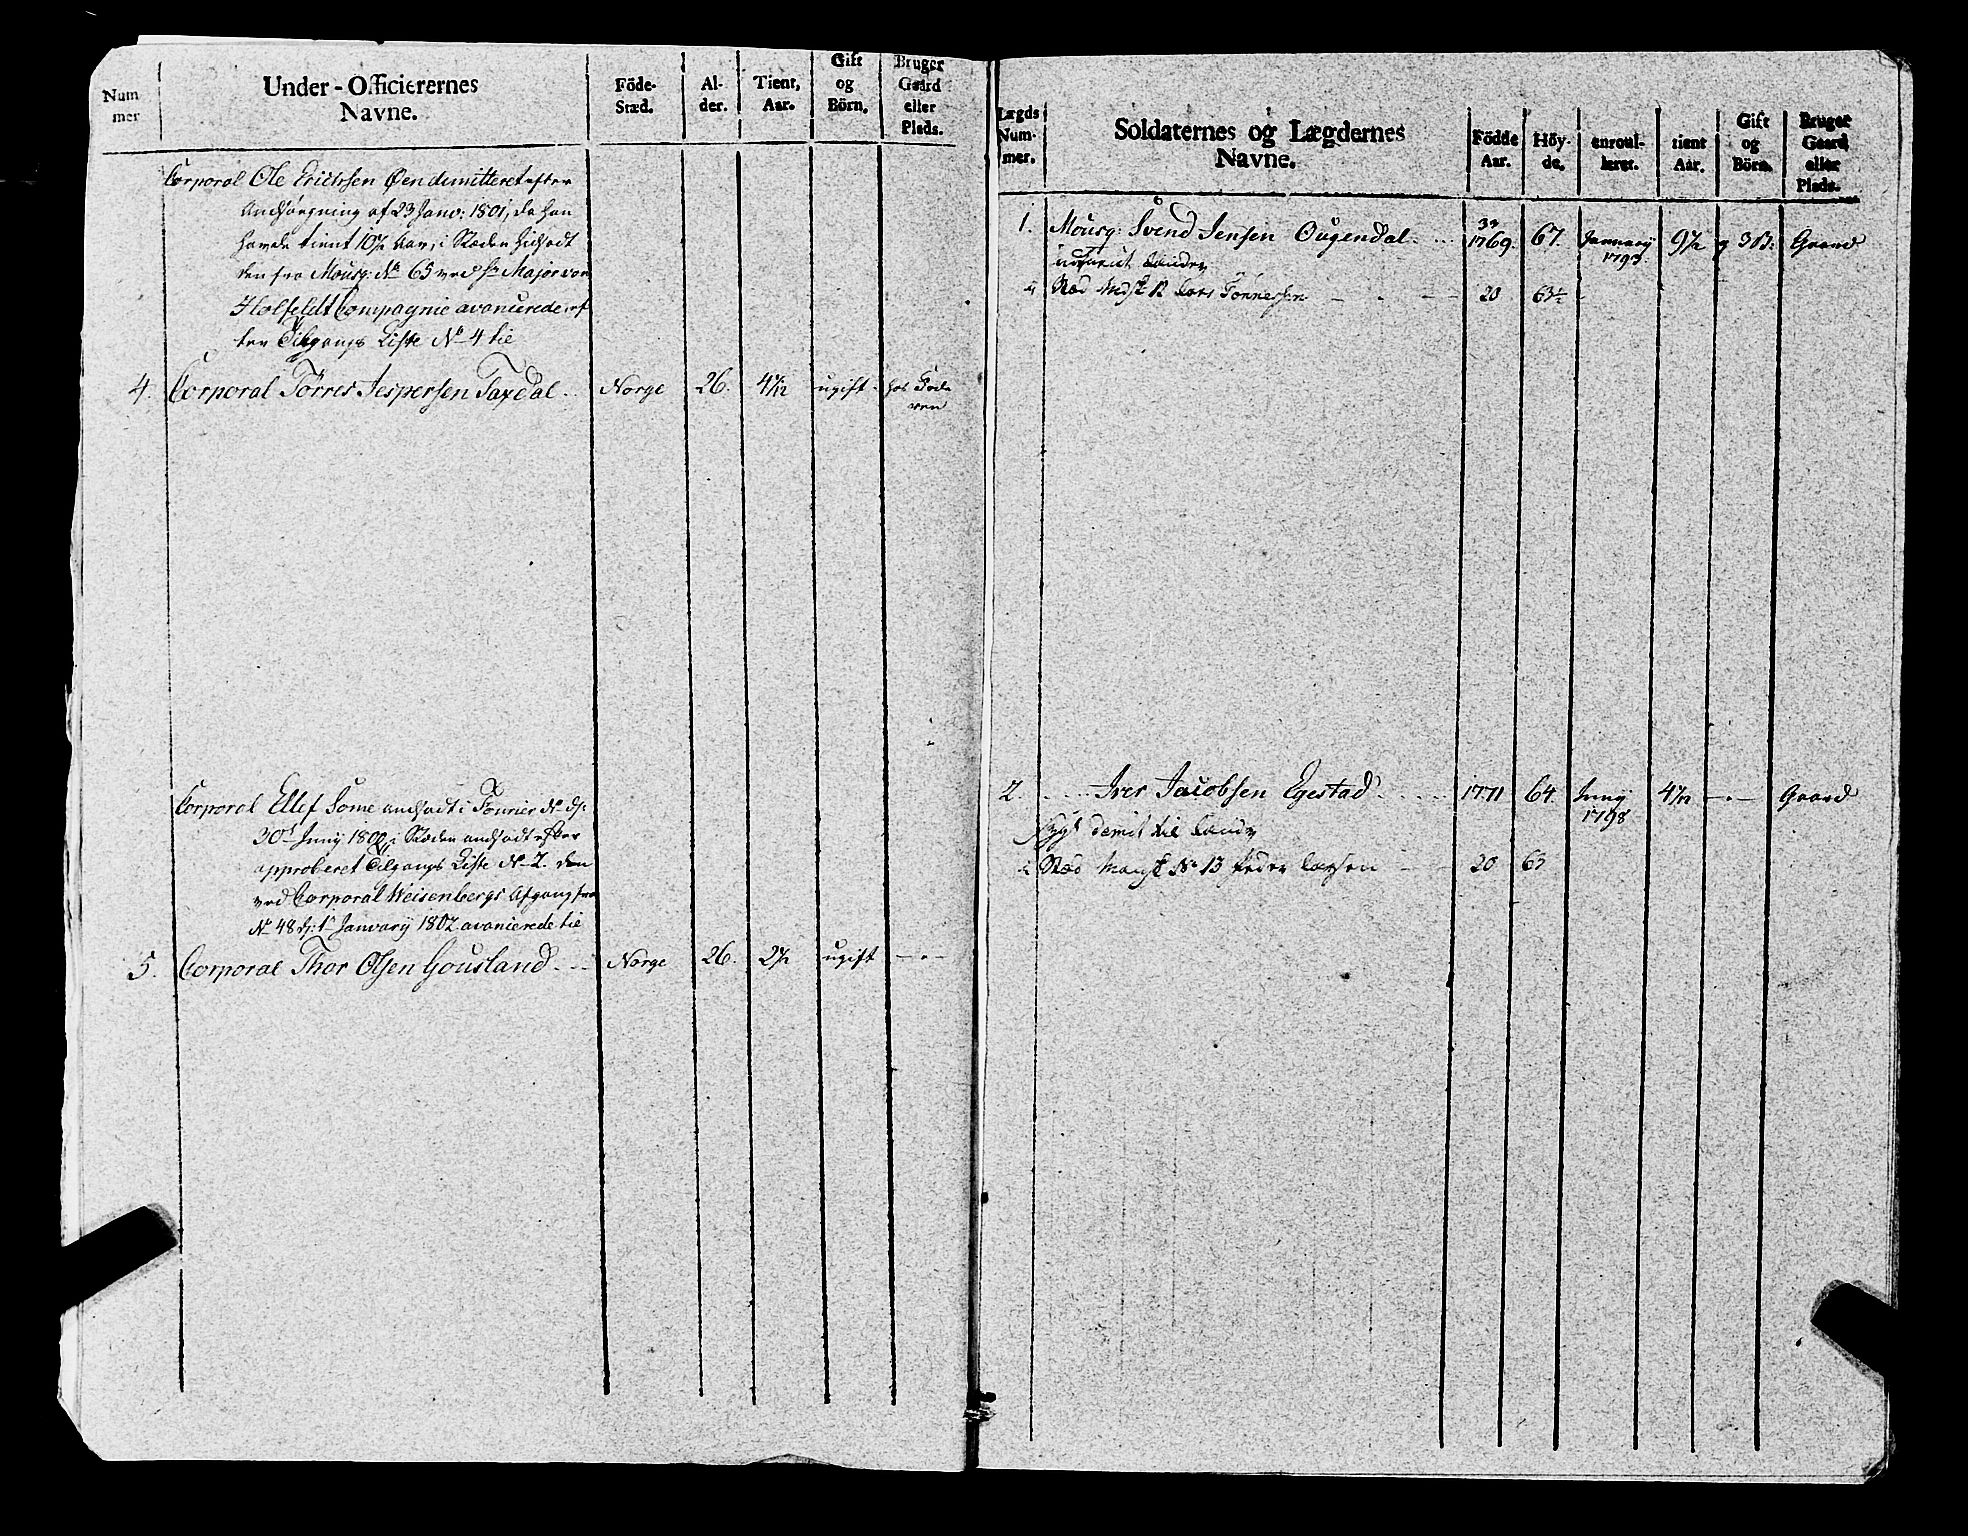 Num
mer
Under-Officierernes
Navne.
Föde-
Stæd.
Al-
der.
Tient,
Aar.
Gift
og
Börn.
Bruger
Gaard
eller
Plads.
Corporal Ole Erichsen Øen demitteret efter
Ansøgning af 23 Janv: 1801, da han
havde tient 10 1/2 Aar, i Stæden
den fra Mousq: No 65 ved Hr Major von
Holfeldt Compagnie avancerede, ef
ter Tilgangs Liste No 4 til
4. Corporal Tørres Jespersen Taxdal Norge 26. ugift
Corporal Ellef Some ansadt i Fourier No
30t Juny 1800, i Stæden ansadt efter
approberet Tilgangs Liste No 2. den
ved Corporal Weisenbergs Afgang fra
No 48 d: 1t January 1802 avancerede til
5. Corporal Thor Olsen Gousland Norge 26. ugift
Lægds
Num-
mer.
Soldaternes og Lægdernes
Navne.
Födde
Aar.
Höy-
de.
enroul-
leret.
tient
Aar.
Gift
og
Börn.
Bruger
Gaard
eller
Plads.
33
1. Mousq: Svend Jensen Ougendal 1769. 67. January 1793. 9 1/2 g 3 B: Gaard
Lars Tønnesen 20 63 1/2
2. Iver Jacobsen Egestad 1771 64 Juny 1798 Gaard
Sygt demit til
No 13 Peder Larsen 20 63